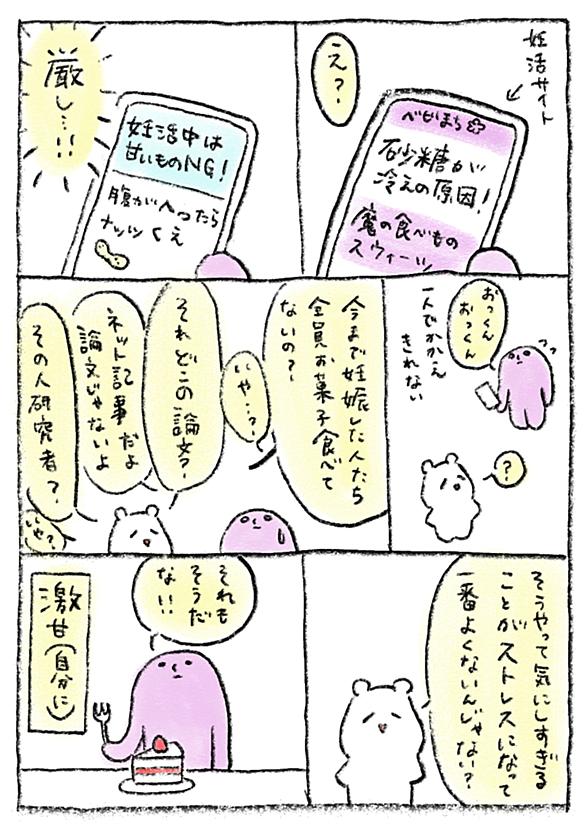 妊活サイト
ベビまち
砂糖が
冷えの原因!
魔の食べもの
スウィーツ
え?
妊活中は
甘いものNG!
腹がへったら
ナッツくえ
厳し…!!
おっくん
おっくん
一人でかかえ
きれない
?
今まで妊娠した人たち
全員お菓子食べて
ないの?
いや…?
それどこの論文?
ネット記事だよ
論文じゃないよ
その人研究者?
いや?
そうやって気にしすぎる
ことがストレスになって
一番よくないんじゃない?
それも
そうだ
な!!
激甘(自分に)